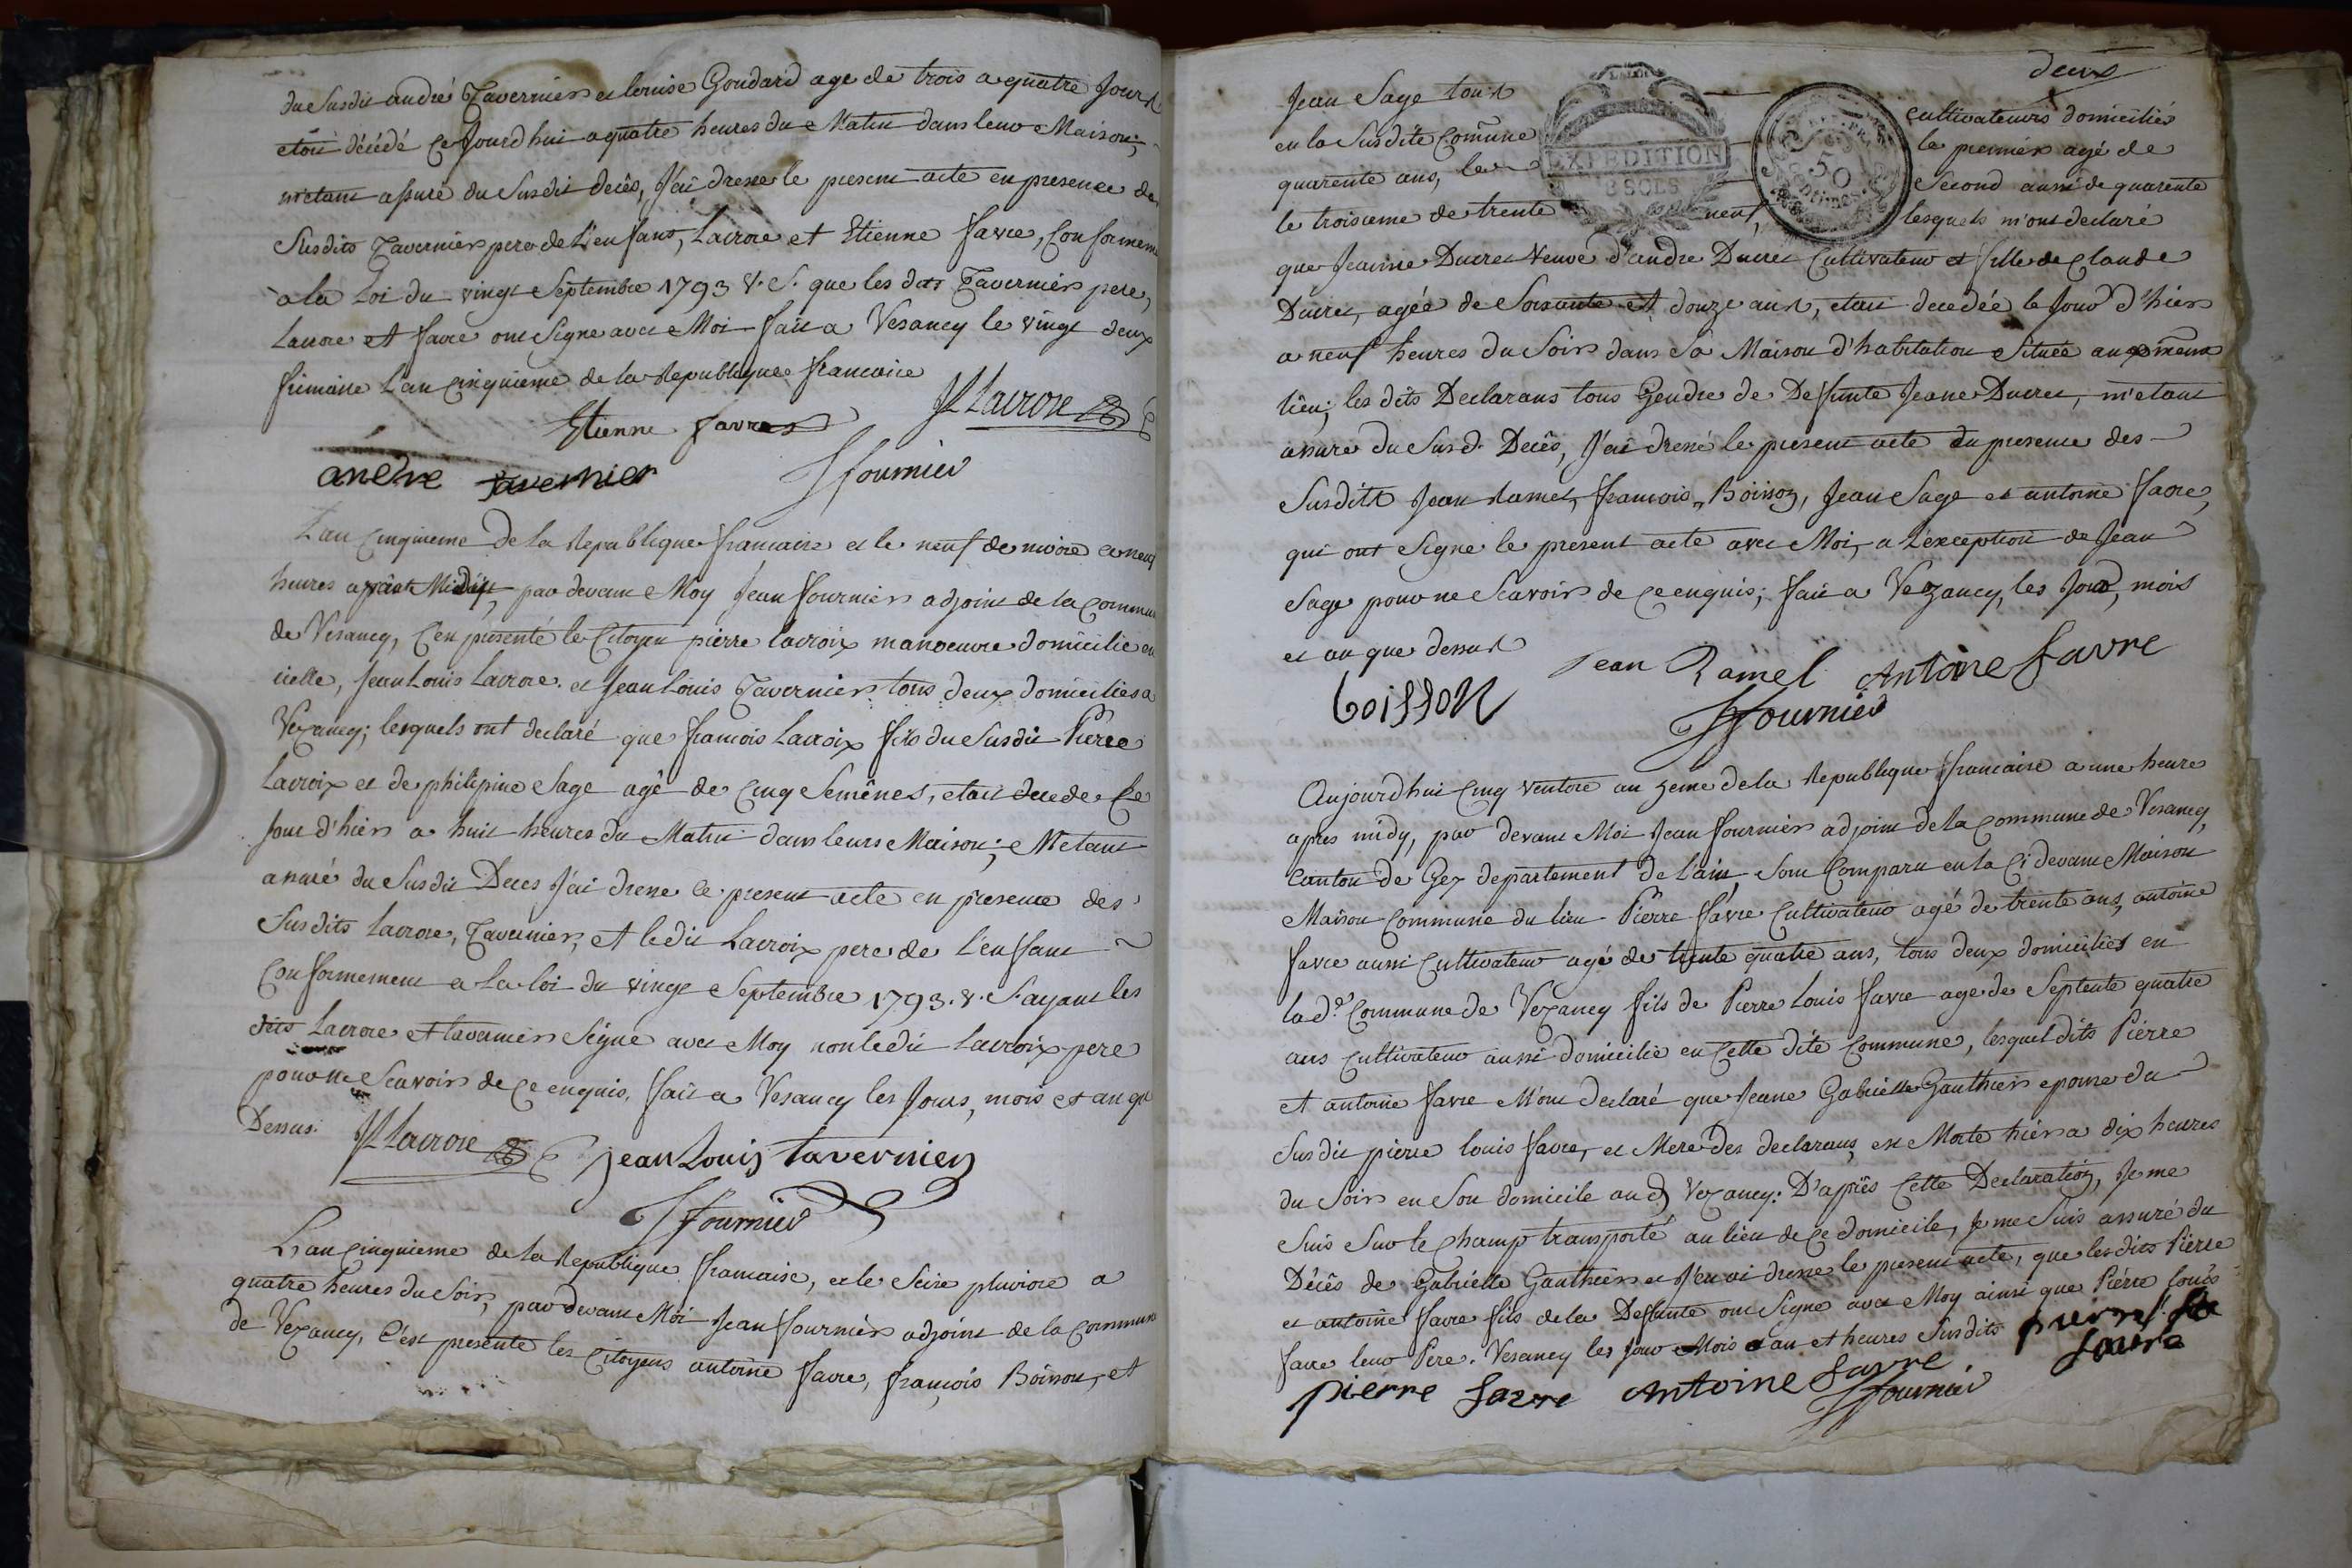 du Susdit andré Tavernier et louise Goudard age de trois a quatre Jours
etoit décédé ce Jourd'hui a quatre heures du Matin dans leur Maison;
m'etant assuré du Susdit decès, J'ai dressé le present acte en presence des
Susdits Tavernier pere de L'enfant, Lacroze et Etienne favre, Conformement
a la Loi du vingt Septembre 1793 V. S. que les dits Tavernier pere,
Lacroze et favre ont Signe avec Moi fait a Vesancy le vingt deux
frimaire L'an Cinquieme de la Republique francaise
Etienne favre JLLacroze
andre tavernier Jfournier
L'an Cinquieme De la Republique francaise et le neuf de nivôse a neuf
heures après Midy, par devant Moy Jean fournier adjoint de la Commune
de Vesancy, C'en présenté le Citoyen pierre lacroix manoeuvre domicilie en
icelle, Jean Louis Lacroze et Jean Louis Tavernier tous deux domicilies a
Vezancy; lesquels ont declaré que francois Lacroix fils du Susdit Pierre
Lacroix et de philipine Sage agé de Cinq Semênes, etait decede le
Jour d'hier a huit heures du Matin dans leurs Maison; M'etant
assuré du Susdit Deces J'ai dresse le present acte en presence des
Susdits Lacroze, Tavernier, et ledit Lacroix pere de L'enfant
Conformement a la loi du vingt Septembre 1793. V. S. ayant les
dits Lacroze et tavernier Signe avec Moy non ledit Lacroix pere
pour ne Scavoir de ce enquis. fait a Vesancy les Jours, mois et an que
Dessus. JLLacroze Jean Louis tavernier
Jfournier
L'an Cinquieme de la Republique francaise, et le Seise pluviose a
quatre heures du Soir, par devant Moi Jean fournier adjoint de la Commune
de Vezancy, C'est presenté les Citoyens antoine favre, francois Boisson, et
deux
Jean Sage tous cultivateurs domiciliés
en la Susdite Comune le premier agé de
quarente ans, le Second aussi de quarente
le troisieme de trente neuf, lesquels m'ont declaré
EXPEDITION
8 SOLS
50
centimes
que Jeanne Ducret Veuve d'andré Ducret Cultivateur et fille de Claude
Ducret, agée de Soixante et douze ans, etait decedée le Jour d'hier
a neuf heures du Soir dans Sa Maison d'habitation Située au meme
lieu; les dits Declarans tous Gendre de Deffunte Jeane Ducret, m'etant
assure du Susd. Decès, J'ai dressé le present acte en presence des
Susdits Jean Ramel, francois Boisson, Jean Sage et antoine favre,
qui ont Signe le present acte avec Moi, a L'exception de Jean
Sage pour ne Scavoir de ce enquis; fait a Vezancy, les Jour, mois
et an que dessus
Jean Ramel Antoine favre
boisson Jfournier
Aujourd'hui Cinq ventose an 5eme de la Republique francaise a une heure
apres midy, par devant Moi Jean fournier adjoint de la Commune de Vesancy,
Canton de Gex departement de L'ain, Sont Comparu en la Ci devant Maison
Maison Commune du lieu Pierre favre Cultivateur agé de trente ans, antoine
favre aussi Cultivateur agé de trente quatre ans, tous deux domiciliés en
la de Commune de Vezancy fils de Pierre Louis favre age de Septente quatre
ans Cultivateur aussi domicilié en Cette dite Commune, lesquel dits Pierre
et antoine favre M'ont declaré que Jeane Gabrielle Gauthier epouse du
Susdit pierre louis favre, et Mere des declarans, est Morte hier a dix heures
du Soir en Son domicile aud Vezancy: D'après Cette Declaration, Je me
Suis Sur le Champ transporté au lieu de ce domicile, Je me Suis assuré du
Décès de Gabrielle Gauthier et J'en ai dresse le present acte, que les dits Pierre
et antoine favre fils de la Deffunte ont Signe avec Moy ainsi que Pierre Louis
favre leur Pere. Vesancy les Jour Mois an et heures Susdits
pierre favre Antoine favre
Jfournier